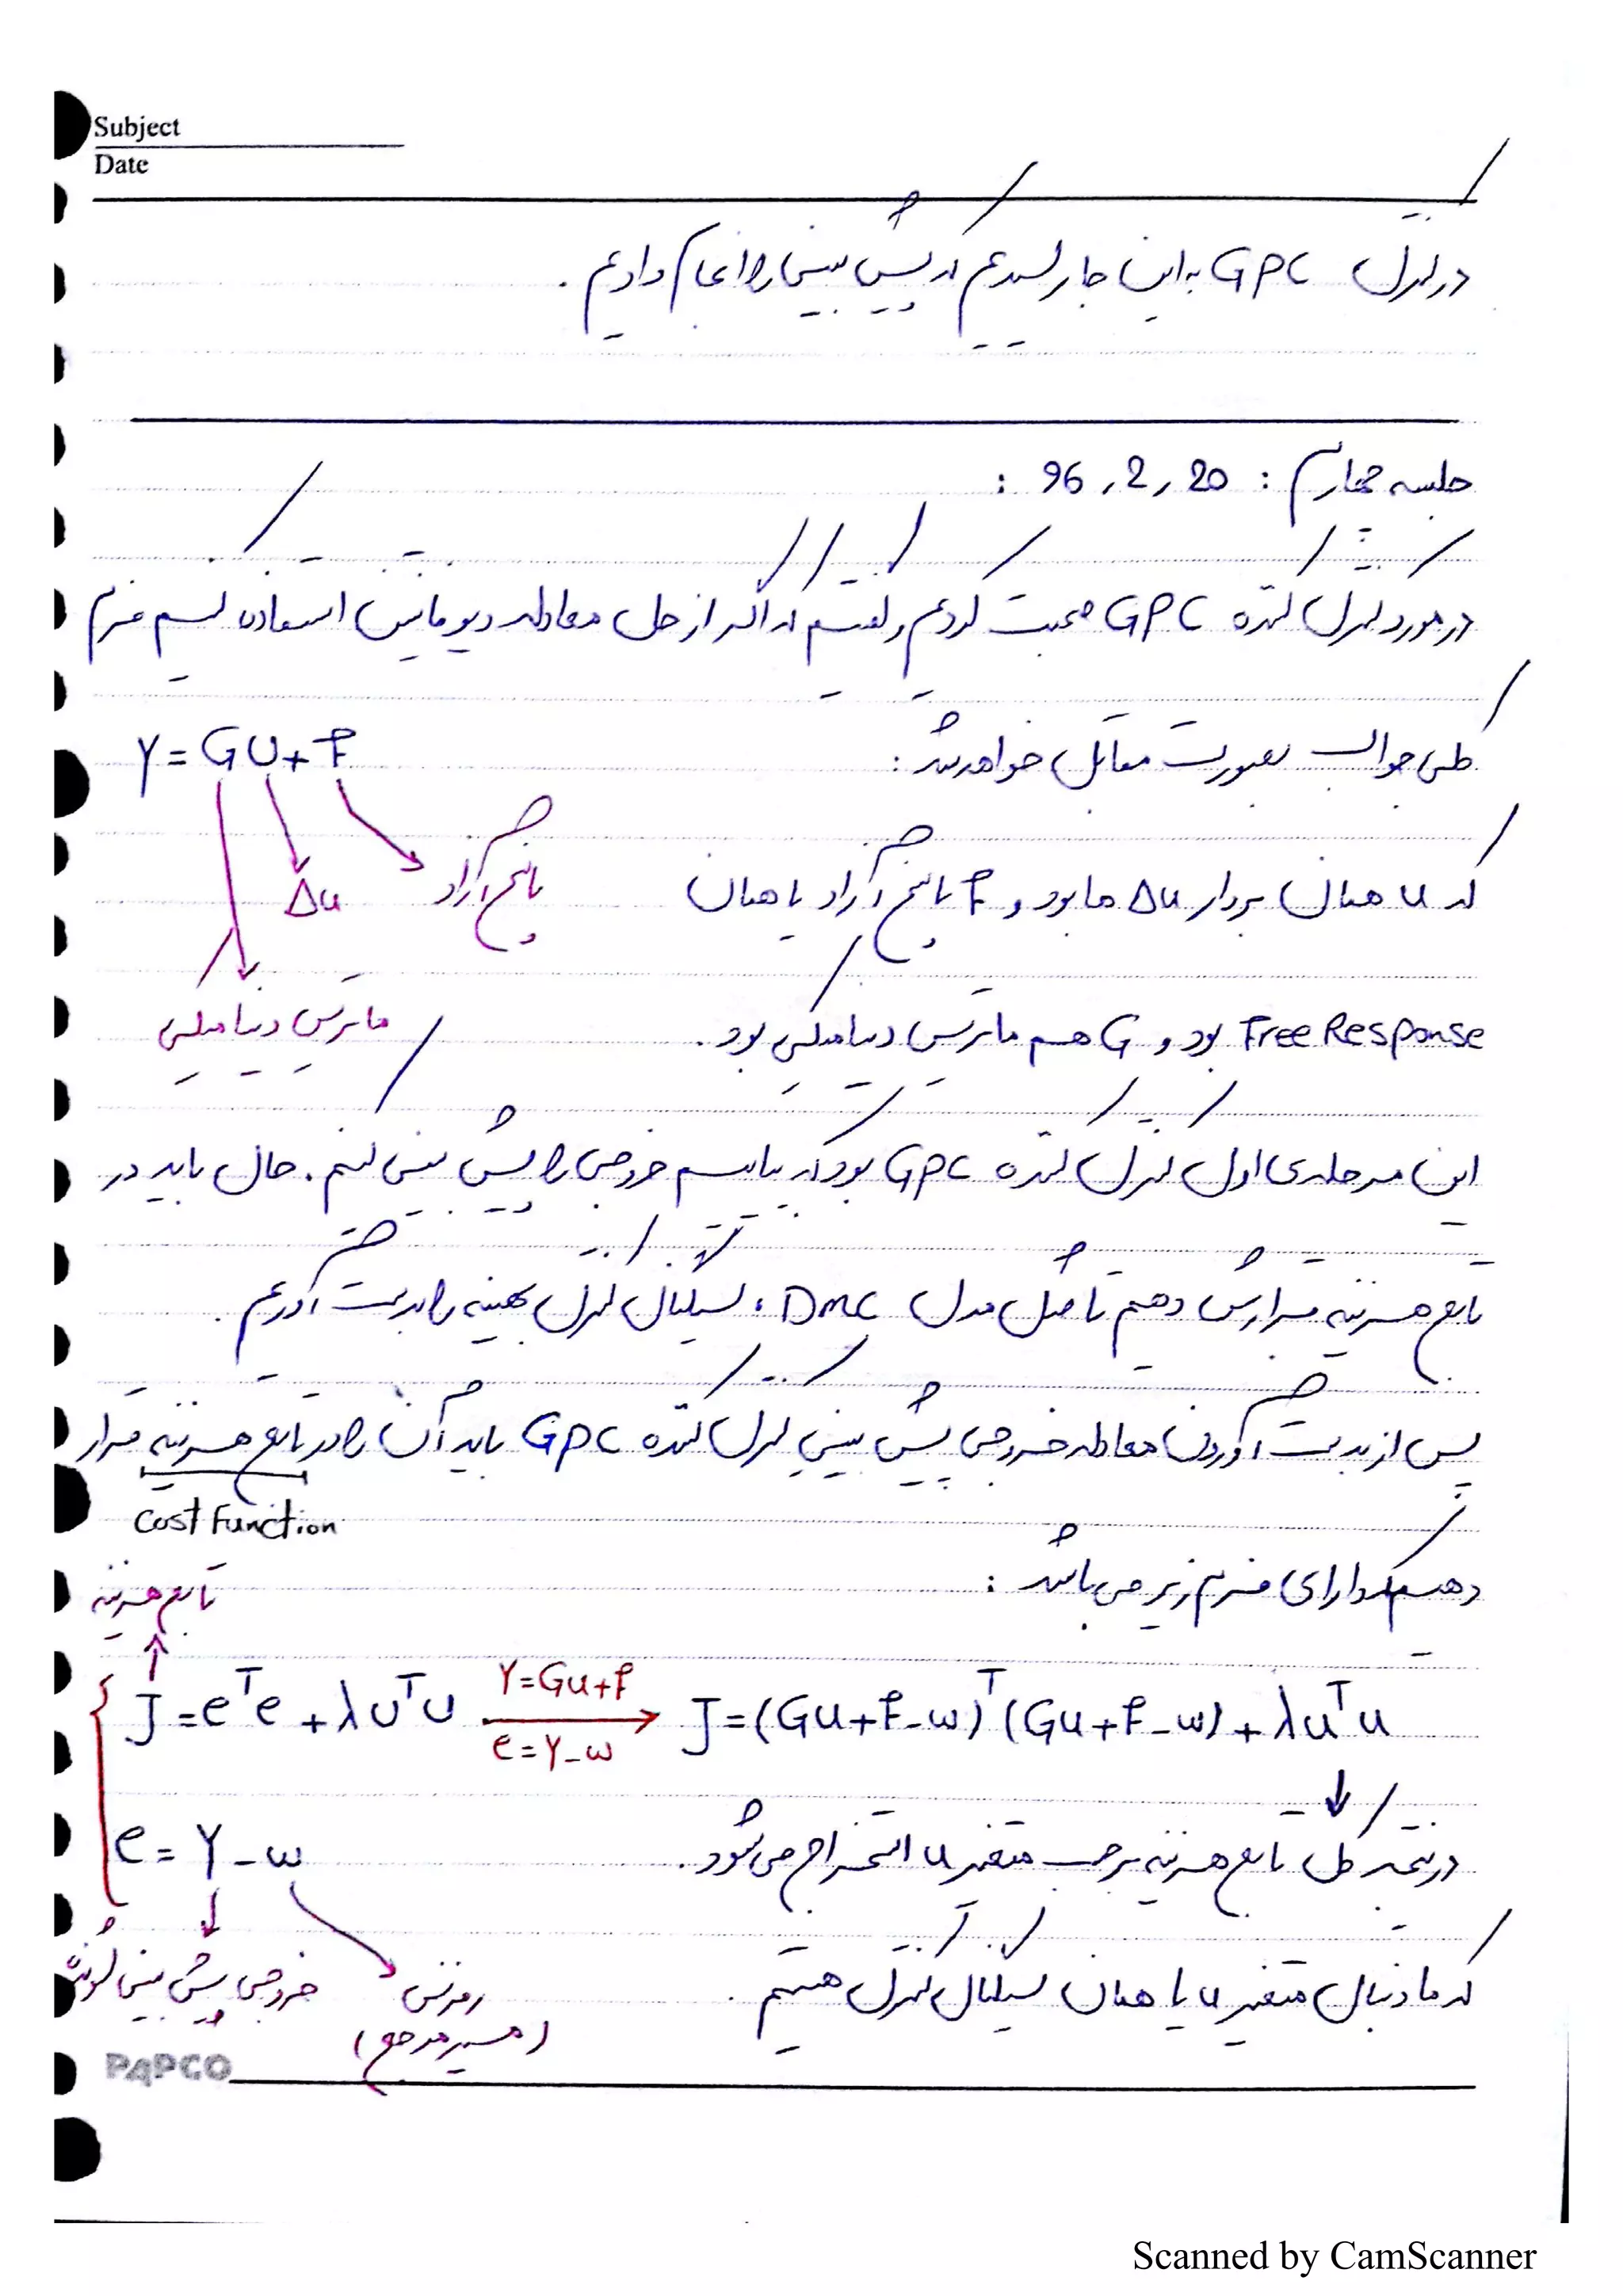 Subject
Date
در کنترل GPC به این جا رسیدیم که پیش بینی را انجام دادیم .
جلسه چهارم : 96,2,20 :
در مورد کنترل کننده GPC صحبت کردیم و گفتیم که اگر از حل معادله دیوفانتین استفاده کنیم فرم
کلی جواب بصورت مقابل خواهد شد :
Y = GU + F
که u همان بردار Δu ما بود و F پاسخ آزاد یا همان
پاسخ آزاد
Δu
Free Response بود و G هم ماتریس دینامیکی بود .
ماتریس دینامیکی
این مرحله‌ی اول کنترل کننده GPC بود که بیاییم خروجی را پیش بینی کنیم . حال باید در
تابع هزینه قرارش دهیم تا مثل مدل DMC ، سیگنال کنترل بهینه را بدست آوریم .
پس از بدست آوردن معادله خروجی پیش بینی کنترل کننده GPC باید آن را در تابع هزینه قرار
Cost Function
دهیم که دارای فرم زیر می باشد :
تابع هزینه
J = eᵀe + λUᵀU
Y=Gu+F
e=Y-w
J = (Gu+F-w)ᵀ (Gu+F-w) + λuᵀu
e = Y - w
در نتیجه کل تابع هزینه برحسب متغیر u استخراج می شود .
که ما دنبال متغیر u یا همان سیگنال کنترل هستیم .
رفرنس
(مسیر مرجع)
خروجی پیش بینی شونده
PAPCO
Scanned by CamScanner